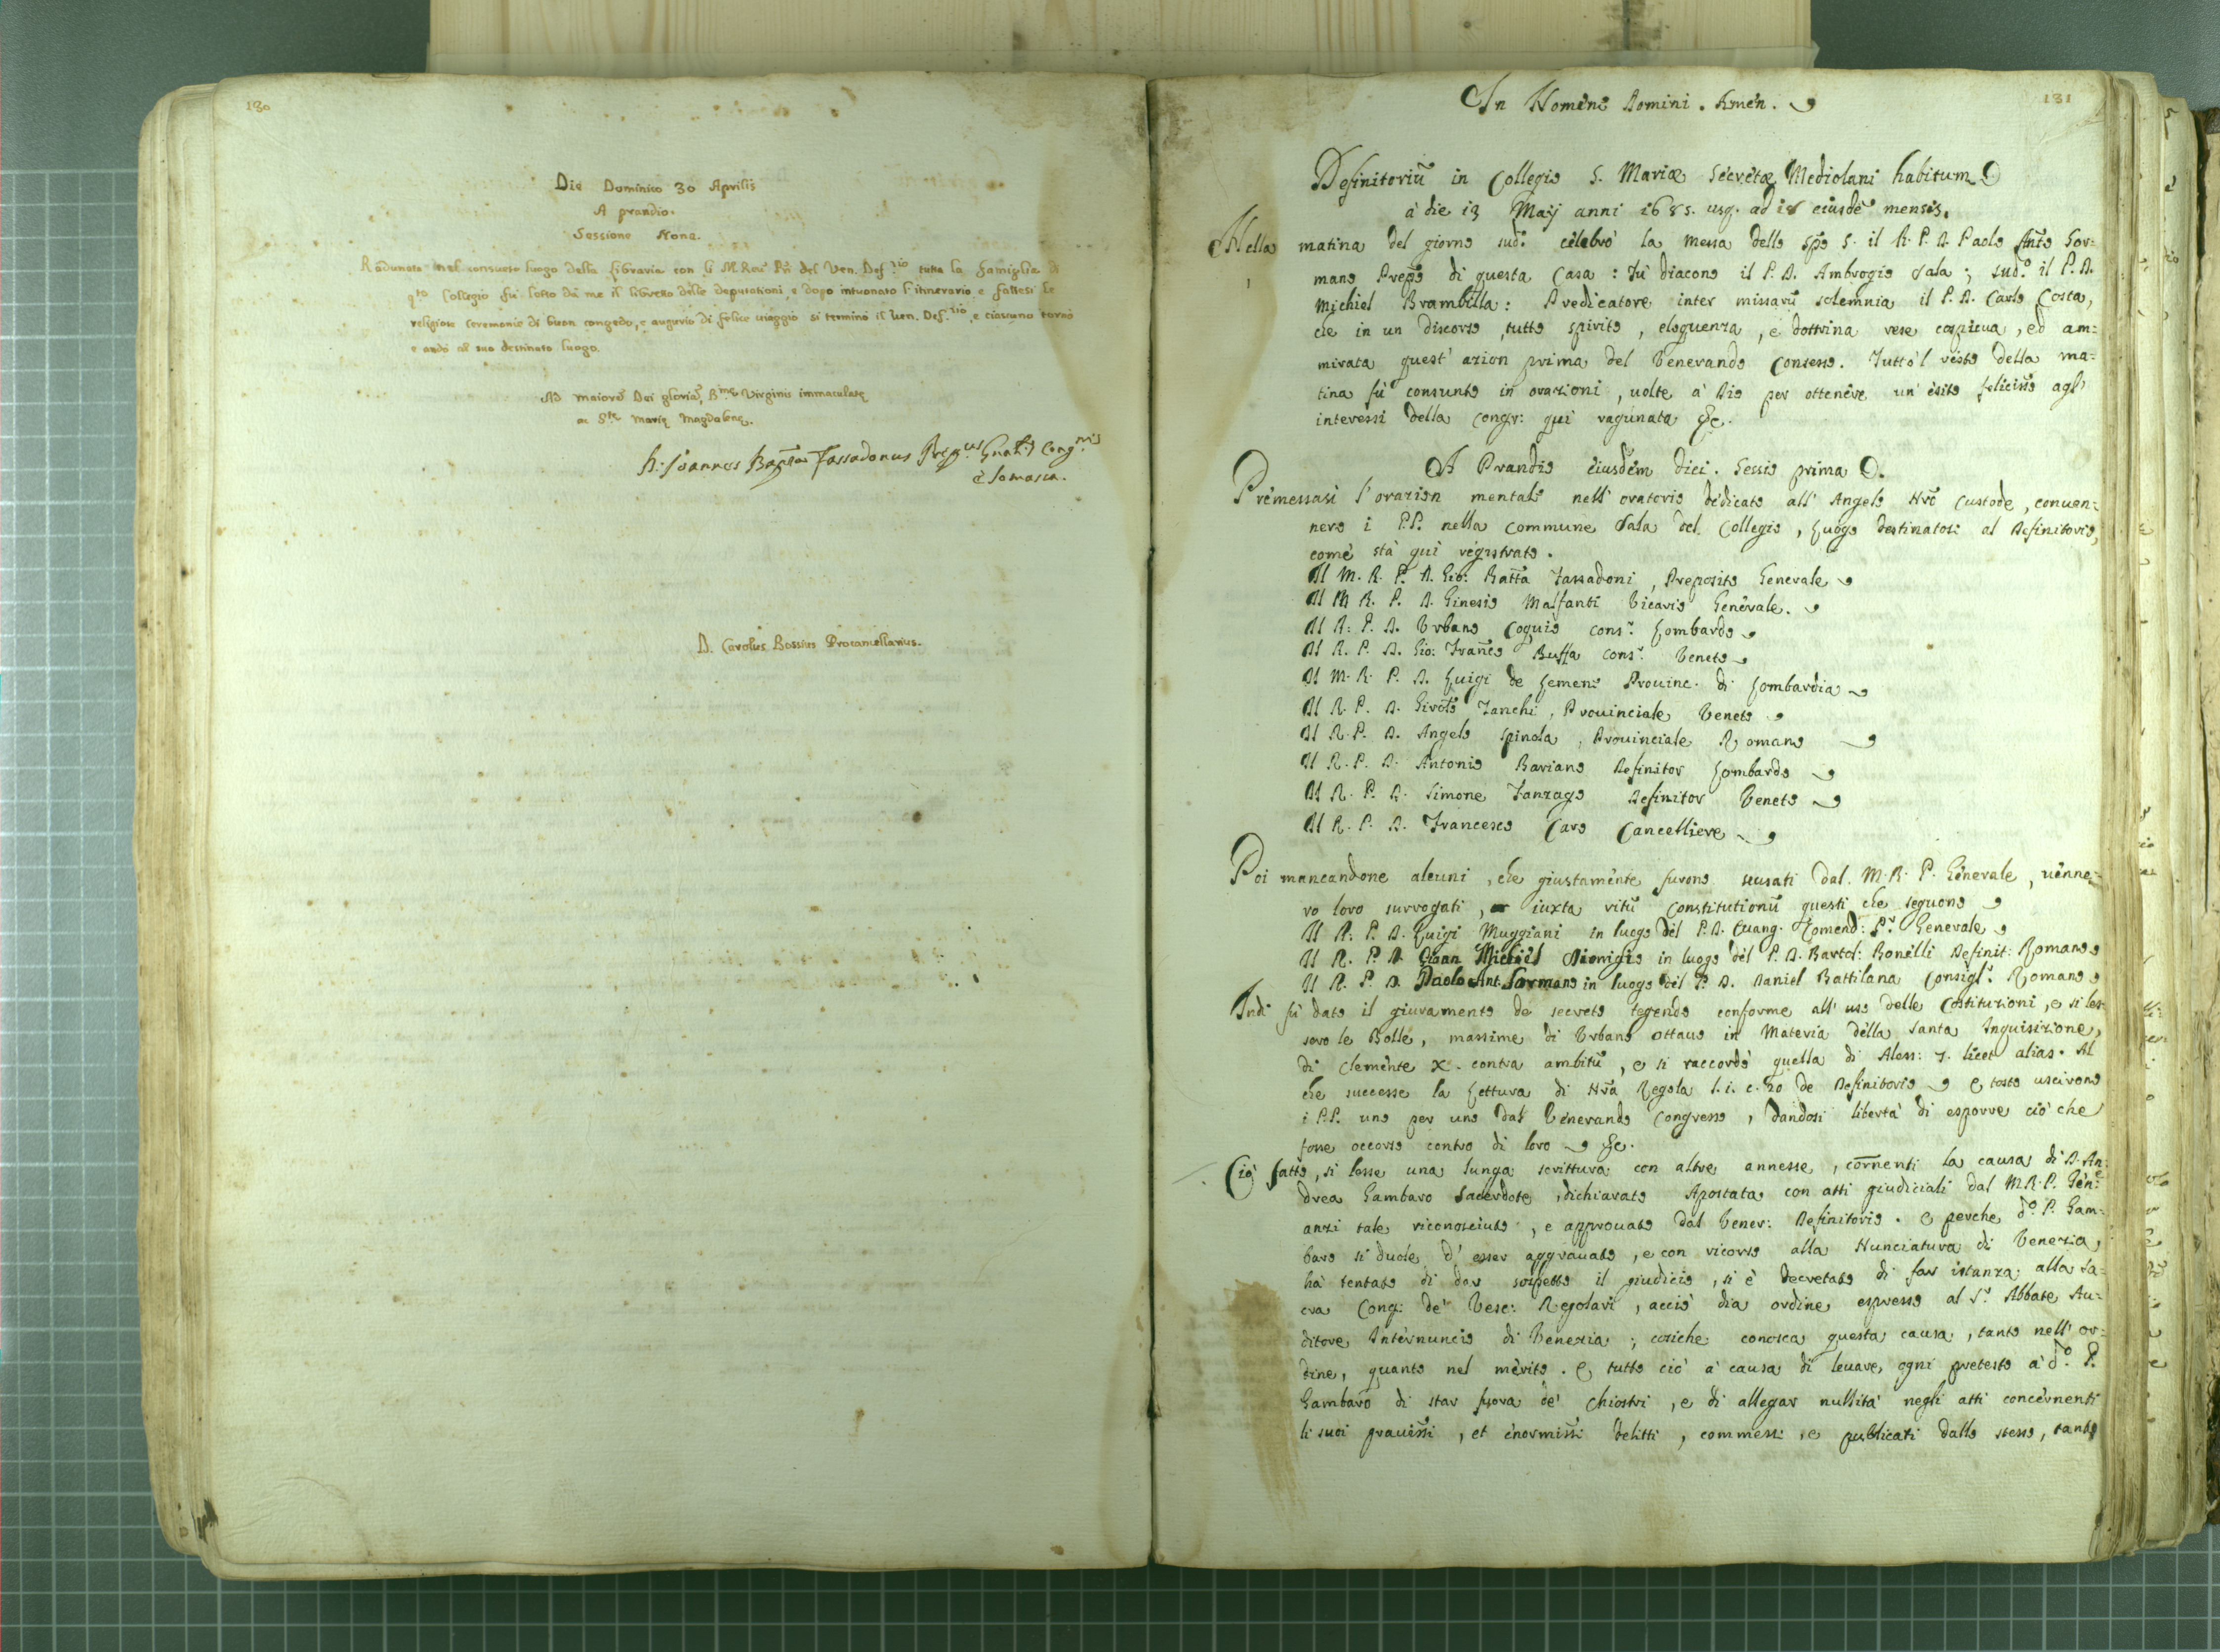 130
Die Dominico 30 Aprilis
A prandio.
Sessione Nona.
Radunato nel consueto luogo della libraria con li M. Reu: Pri del Ven. Def.rio tutta la famiglia di
qto Collegio fù letto da me il libretto delle deputationi, e dopo intuonato l'itinerario e fattesi le
religiose ceremonie di buon congedo, e augurio di felice viaggio si terminò il Ven. Def.rio, e ciascuno tornò
e andò al suo destinato luogo.
Ad maiorē Dei gloriā, B.me Virginis immaculatę
ac S.tę Marię Magdalenę.
D. Joannes Bapta Fassadonus Prep.us Gnalis Cong.nis
è Somasca.
D. Carolus Bossius Procancellarius.
131
In Nomine Domini. Amen.
Definitoriū in Collegio S. Mariæ Secretæ Mediolani habitum
à die 13 Maij anni 1685. usq. ad 18 eiusdē mensis.
Nella matina del giorno sud.o celebrò la messa dello Spo S. il R. P. D. Paolo Anto Sor:
mano Preps̄o di questa Casa: Fù diacono il P. D. Ambrogio Sala; sud.o il P. D.
Michiel Brambilla: Predicatore inter missarū solemnia il P. D. Carlo Costa,
che in un discorso, tutto spirito, eloquenza, e dottrina rese cospicua, ed am:
mirata quest' azion prima del Venerando Consesso. Tutto 'l resto della ma:
tina fù consunto in orazioni, uolte à Dio per ottenere un' esito feliciss̄o agl'
interessi della Congr: qui ragunata &c.
1
A Prandio eiusdem diei. Sessio prima.
Premessasi l'orazion mentale nell' oratorio dedicato all' Angelo Nrō Custode, conuen:
nero i P.P. nella commune Sala del Collegio, luogo destinatosi al Definitorio,
come stà quì registrato.
Il M. R. P. D. Gio: Batta Fassadoni, Preposito Generale
Il M R. P. D. Ginesio Malfanti Vicario Generale.
Il R: P. D. Vrbano Coquio cons.r Lombardo
Il R. P. D. Gio: Franco Buffa cons.r Veneto
Il M. R. P. D. Luigi de Lemeni Prouinc. di Lombardia
Il R. P. D. Girolō Zanchi, Prouinciale Veneto
Il R. P. D. Angelo Spinola, Prouinciale Romano
Il R. P. D. Antonio Bariano Definitor Lombardo
Il R. P. D. Simone Fanzago Definitor Veneto
Il R. P. D. Francesco Caro Cancelliere
Poi mancandone alcuni, che giustamente furono scusati dal M. R. P. Generale, uenne:
ro loro surrogati, iuxta ritū Constitutionū questi che seguono
Il R: P. D. Luigi Muggiani in luogo del P. D. Euang. Pr Generale
Il R. P. D. Gioan Michiel Dionigio in luogo del P. D. Bartol: Bonelli Definit: Romano
Il R. P. D. Paolo Ant. Sormano in luogo del P. D. Daniel Battilana Consigl.r Romano
Indi fù dato il giuramento de secreto tegendo conforme all' uso delle Costituzioni, e si les:
sero le Bolle, massime di Vrbano ottauo in Materia della Santa Inquisizione,
di Clemente X. contra ambitū, e si raccordò quella di Aless: 7. licet alias. Al
che successe la Lettura di Nrā Regola l. i. c. 20 de Definitorio e tosto uscirono
i P.P. uno per uno dal Venerando Congresso, dandosi libertà di esporre ciò che
fosse occorso contro di loro &c.
Ciò fatto, si lesse una lunga scrittura con altre annesse, cōrnenti la causa di D. An:
drea Gambaro Sacerdote, dichiarato Apostata con atti giudiciali dal M. R. P. Gen:e
anzi tale riconosciuto, e approuato dal Vener: Definitorio. E perche d.o P. Gam:
baro si duole d' esser aggrauato, e con ricorso alla Nunciatura di Venezia,
hà tentato di dar sospetto il giudicio, si è decretato di far istanza alla Sa:
cra Cong: de' Vesc: Regolari, acciò dia ordine espresso al S.r Abbate Au:
ditore Internuncio di Venezia; cosiche conosca questa causa, tanto nell' or:
dine, quanto nel merito. E tutto ciò à causa di leuare ogni pretesto à d.o P.
Gambaro di star fuora de' chiostri, e di allegar nullità negli atti concernenti
li suoi grauissi, et enormissi delitti, commessi, e publicati dallo stesso, tanto